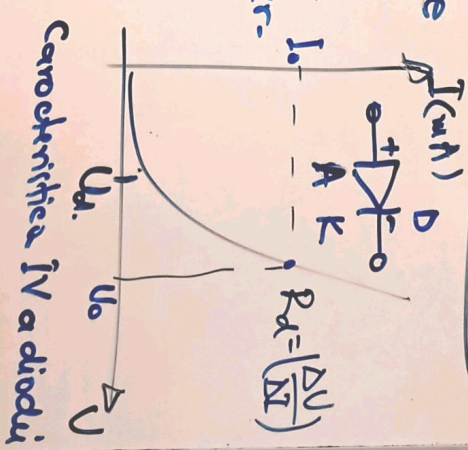 I(mA)
D
+
A K
I₀
Rd=(ΔU/ΔI)
Ud.
U₀
U
Caracteristica IV a diodei